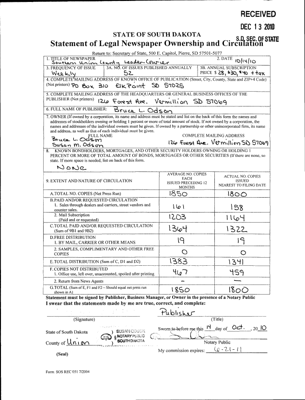 RECEIVED
DEC 13 2010
S.D. SEC. OF STATE
STATE OF SOUTH DAKOTA
Statement of Legal Newspaper Ownership and Circulation
Return to: Secretary of State, 500 E. Capitol, Pierre, SD 57501-5077
1. TITLE OF NEWSPAPER
Southern Union County Leader-Courier
2. DATE
10/14/10
3. FREQUENCY OF ISSUE
Weekly
3A. NO. OF ISSUES PUBLISHED ANNUALLY
52
3B. ANNUAL SUBSCRIPTION
PRICE $
4. COMPLETE MAILING ADDRESS OF KNOWN OFFICE OF PUBLICATION (Street, City, County, State and ZIP+4 Code)
(Not printers) PO Box 310 Elk Point SD 57025
5. COMPLETE MAILING ADDRESS OF THE HEADQUARTERS OR GENERAL BUSINESS OFFICES OF THE
PUBLISHER (Not printer) 126 Forest Ave. Vermillion SD 57069
6. FULL NAME OF PUBLISHER: Bruce L. Odson
7. OWNER (If owned by a corporation, its name and address must be stated and also immediately below that the names and
addresses of stockholders owning or holding 1 percent or more of total amount of stock. If not owned by a corporation, the
names and addresses of the individual owners must be given. If owned by a partnership or other unincorporated firm, its name
and address, as well as that of each individual must be given.
FULL NAME
COMPLETE MAILING ADDRESS
Bruce L. Odson
Susan M. Odson
126 Forest Ave. Vermillion SD 57069
8. KNOWN BONDHOLDERS, MORTGAGEES, AND OTHER SECURITY HOLDERS OWNING OR HOLDING 1
PERCENT OR MORE OF TOTAL AMOUNT OF BONDS, MORTGAGES OR OTHER SECURITIES (If there are none, so
state. If more space is needed, list on back of this form)
None
9. EXTENT AND NATURE OF CIRCULATION
AVERAGE NO. COPIES
EACH
ISSUES PRECEDING 12
MONTHS
ACTUAL NO. COPIES
ISSUED
NEAREST TO FILING DATE
A. TOTAL NO. COPIES (Net Press Run)
1850
1800
B. PAID AND/OR REQUESTED CIRCULATION
1. Sales through dealers and carriers, street vendors and
counter sales.
161
158
2. Mail Subscription
(Paid and or requested)
1203
1164
C. TOTAL PAID AND/OR REQUESTED CIRCULATION
(Sum of 9B1 and 9B2)
1364
1322
D. FREE DISTRIBUTION
1. BY MAIL, CARRIER OR OTHER MEANS
19
19
2. SAMPLES, COMPLIMENTARY AND OTHER FREE
COPIES
0
0
E. TOTAL DISTRIBUTION (Sum of C, D1 and D2)
1383
1341
F. COPIES NOT DISTRIBUTED
1. Office use, left over, unaccounted, spoiled after printing
467
459
2. Return from News Agents
-
-
G. TOTAL (Sum of E, F1 and F2 - Should equal net press run
shown in A)
1850
1800
Statement must be signed by Publisher, Business Manager, or Owner in the presence of a Notary Public
I swear that the statements made by me are true, correct, and complete:
Publisher
(Signature)
(Title)
State of South Dakota
County of Union
(Seal)
NOTARY PUBLIC
SOUTH DAKOTA
Sworn to before me this 14 day of Oct. 20 10
Notary Public
My commission expires:
Form: SOS REC 051 7/2004